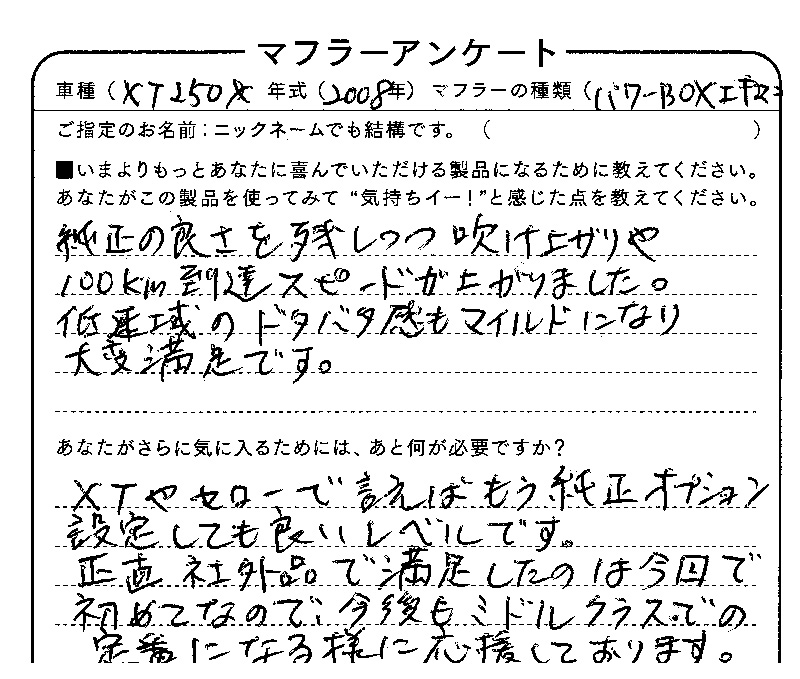 マフラーアンケート
車種（XT250X 年式（2008年）マフラーの種類（パワーBOXエキマニ
ご指定のお名前：ニックネームでも結構です。（ ）
■いまよりもっとあなたに喜んでいただける製品になるために教えてください。
あなたがこの製品を使ってみて“気持ちイー！”と感じた点を教えてください。
純正の良さを残しつつ吹け上がりや
100km到達スピードが上がりました。
低速域のドタバタ感もマイルドになり
大変満足です。
あなたがさらに気に入るためには、あと何が必要ですか？
XTやセローで言えばもう純正オプション
設定しても良いレベルです。
正直社外品で満足したのは今回で
初めてなので、今後もミドルクラスでの
定番になる様に応援しております。